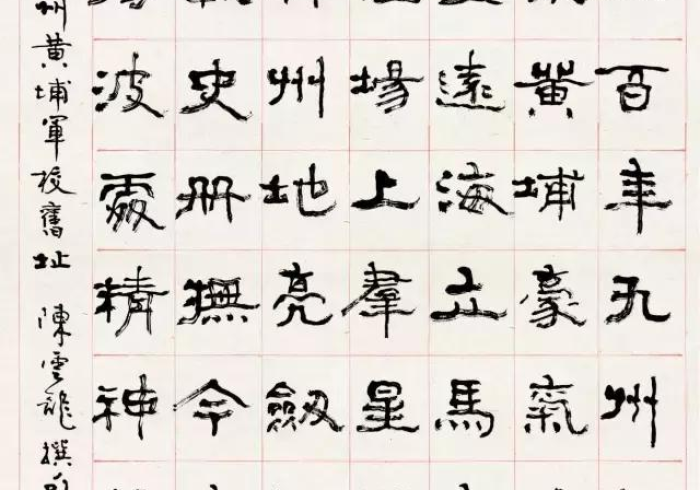 百年九州
黃埔豪氣
遠海立馬
場上羣星
州地亮劔
史册撫今
波精神
州黃埔軍校舊址 陳雲龍撰